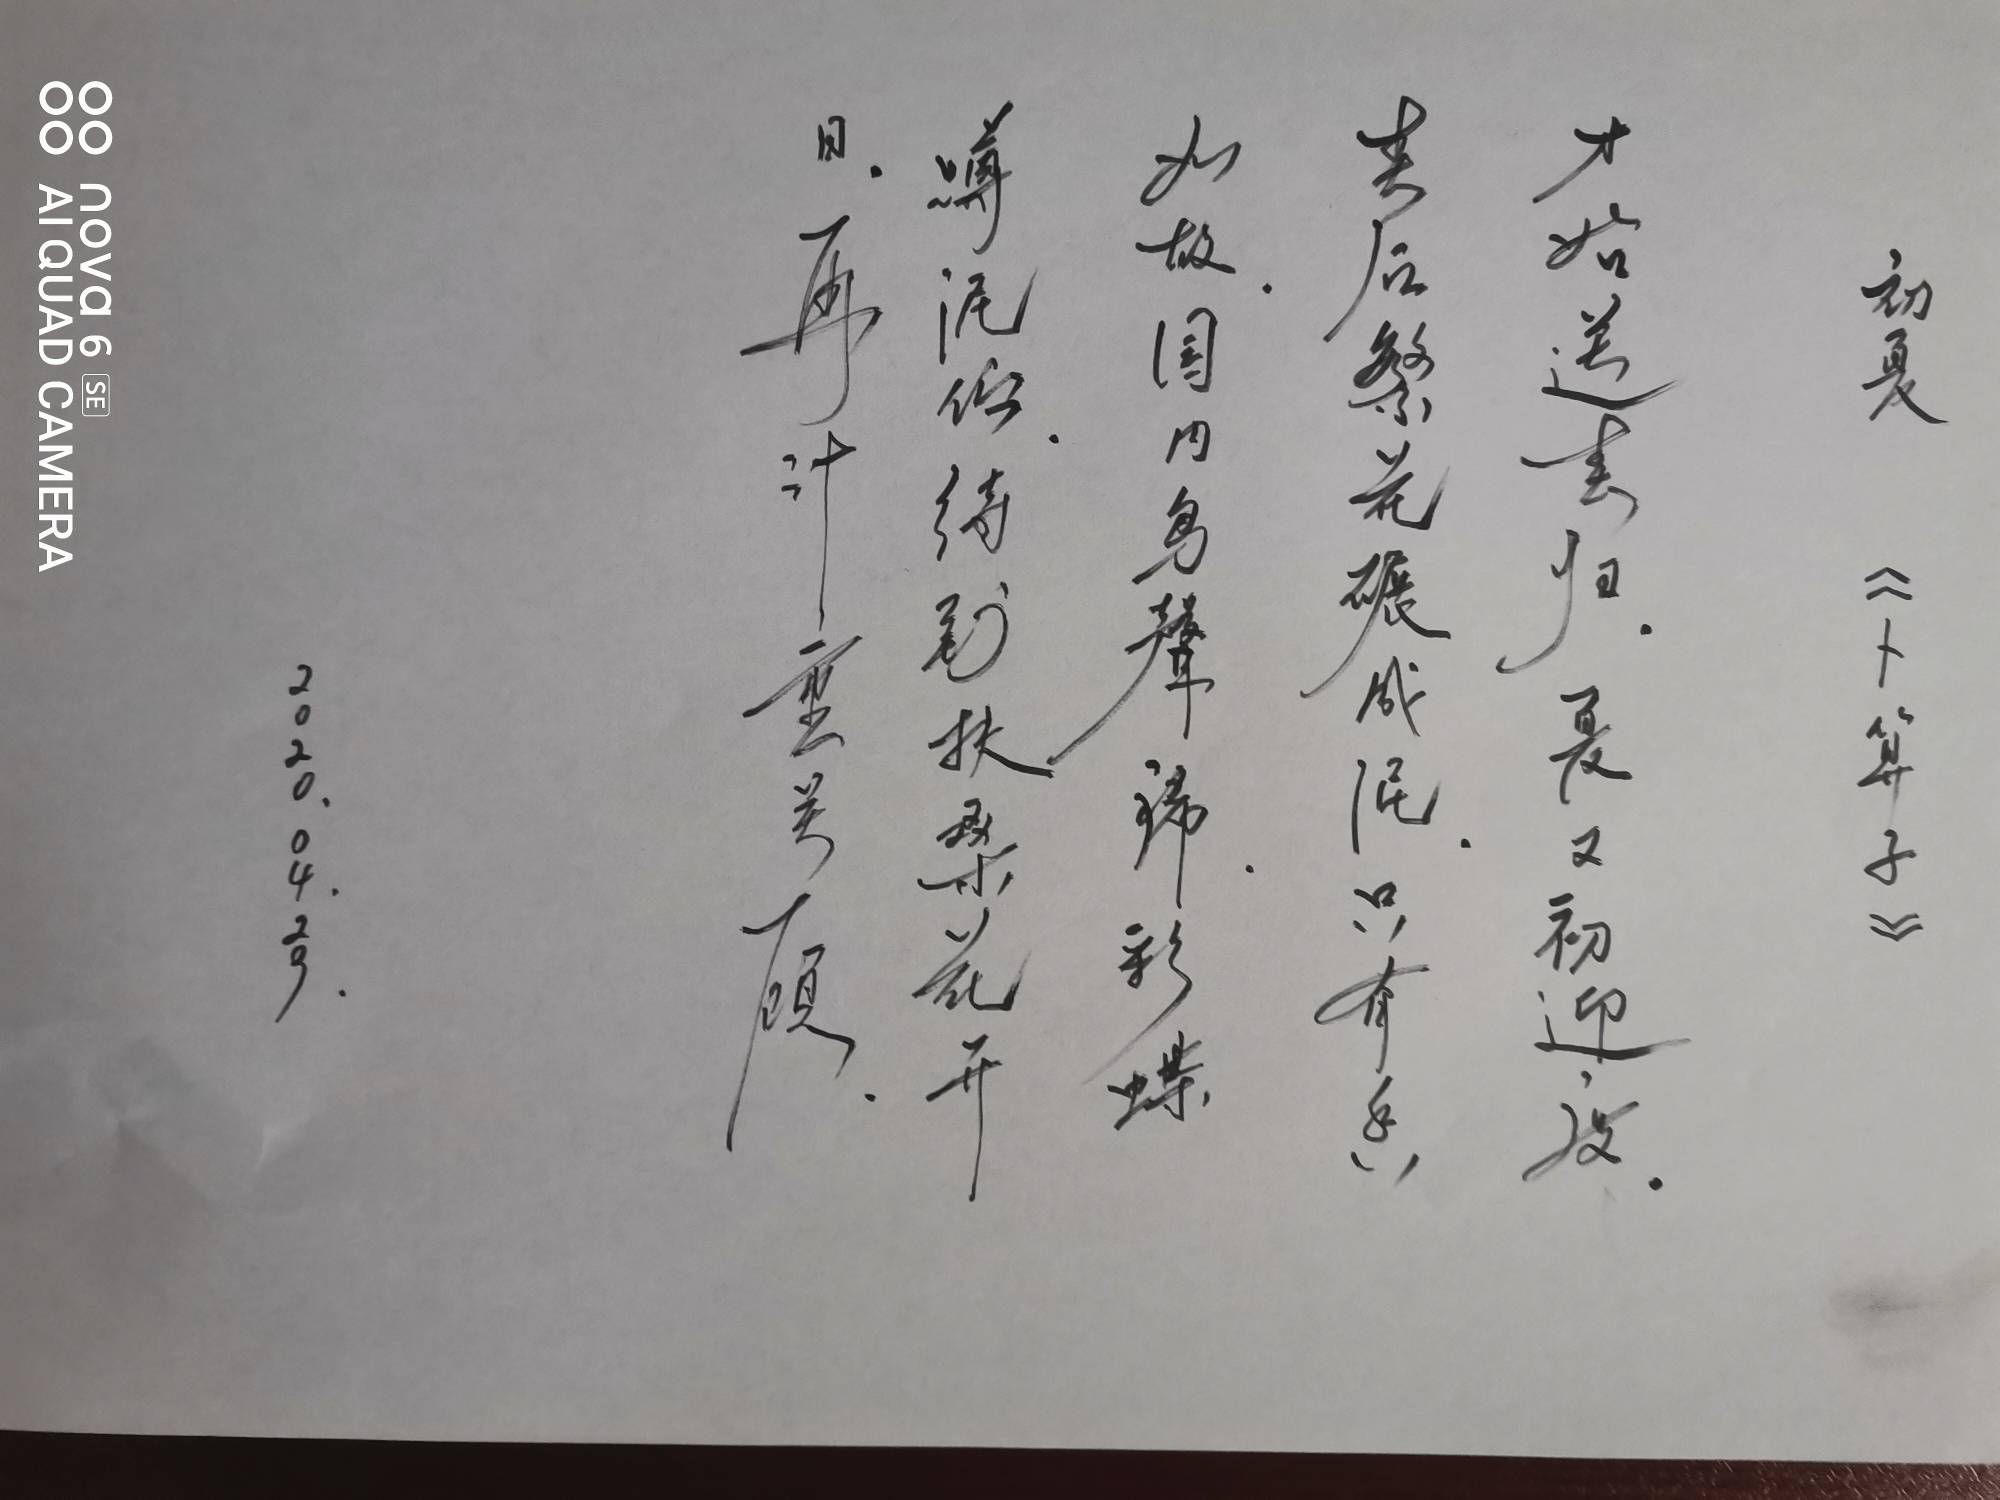 初夏 《卜算子》
才始送春归.夏又初迎接.
春后繁花碾成泥.只有香
如故.园内鸟聲稀.彩蝶
泥.待到扶桑花开
日.再计重关顾.
2020.04.29.
nova 6 SE
AI QUAD CAMERA